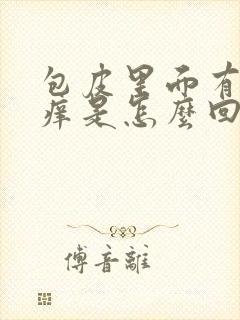 包皮里而有
痒是怎麼回
傅音離